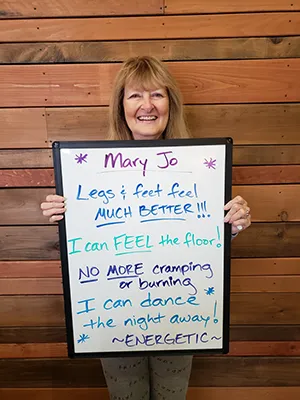 * Mary Jo *
Legs & feet feel
MUCH BETTER!!!
I can FEEL the floor!
NO MORE cramping
or burning
* I can dance *
* the night away!
~ENERGETIC~